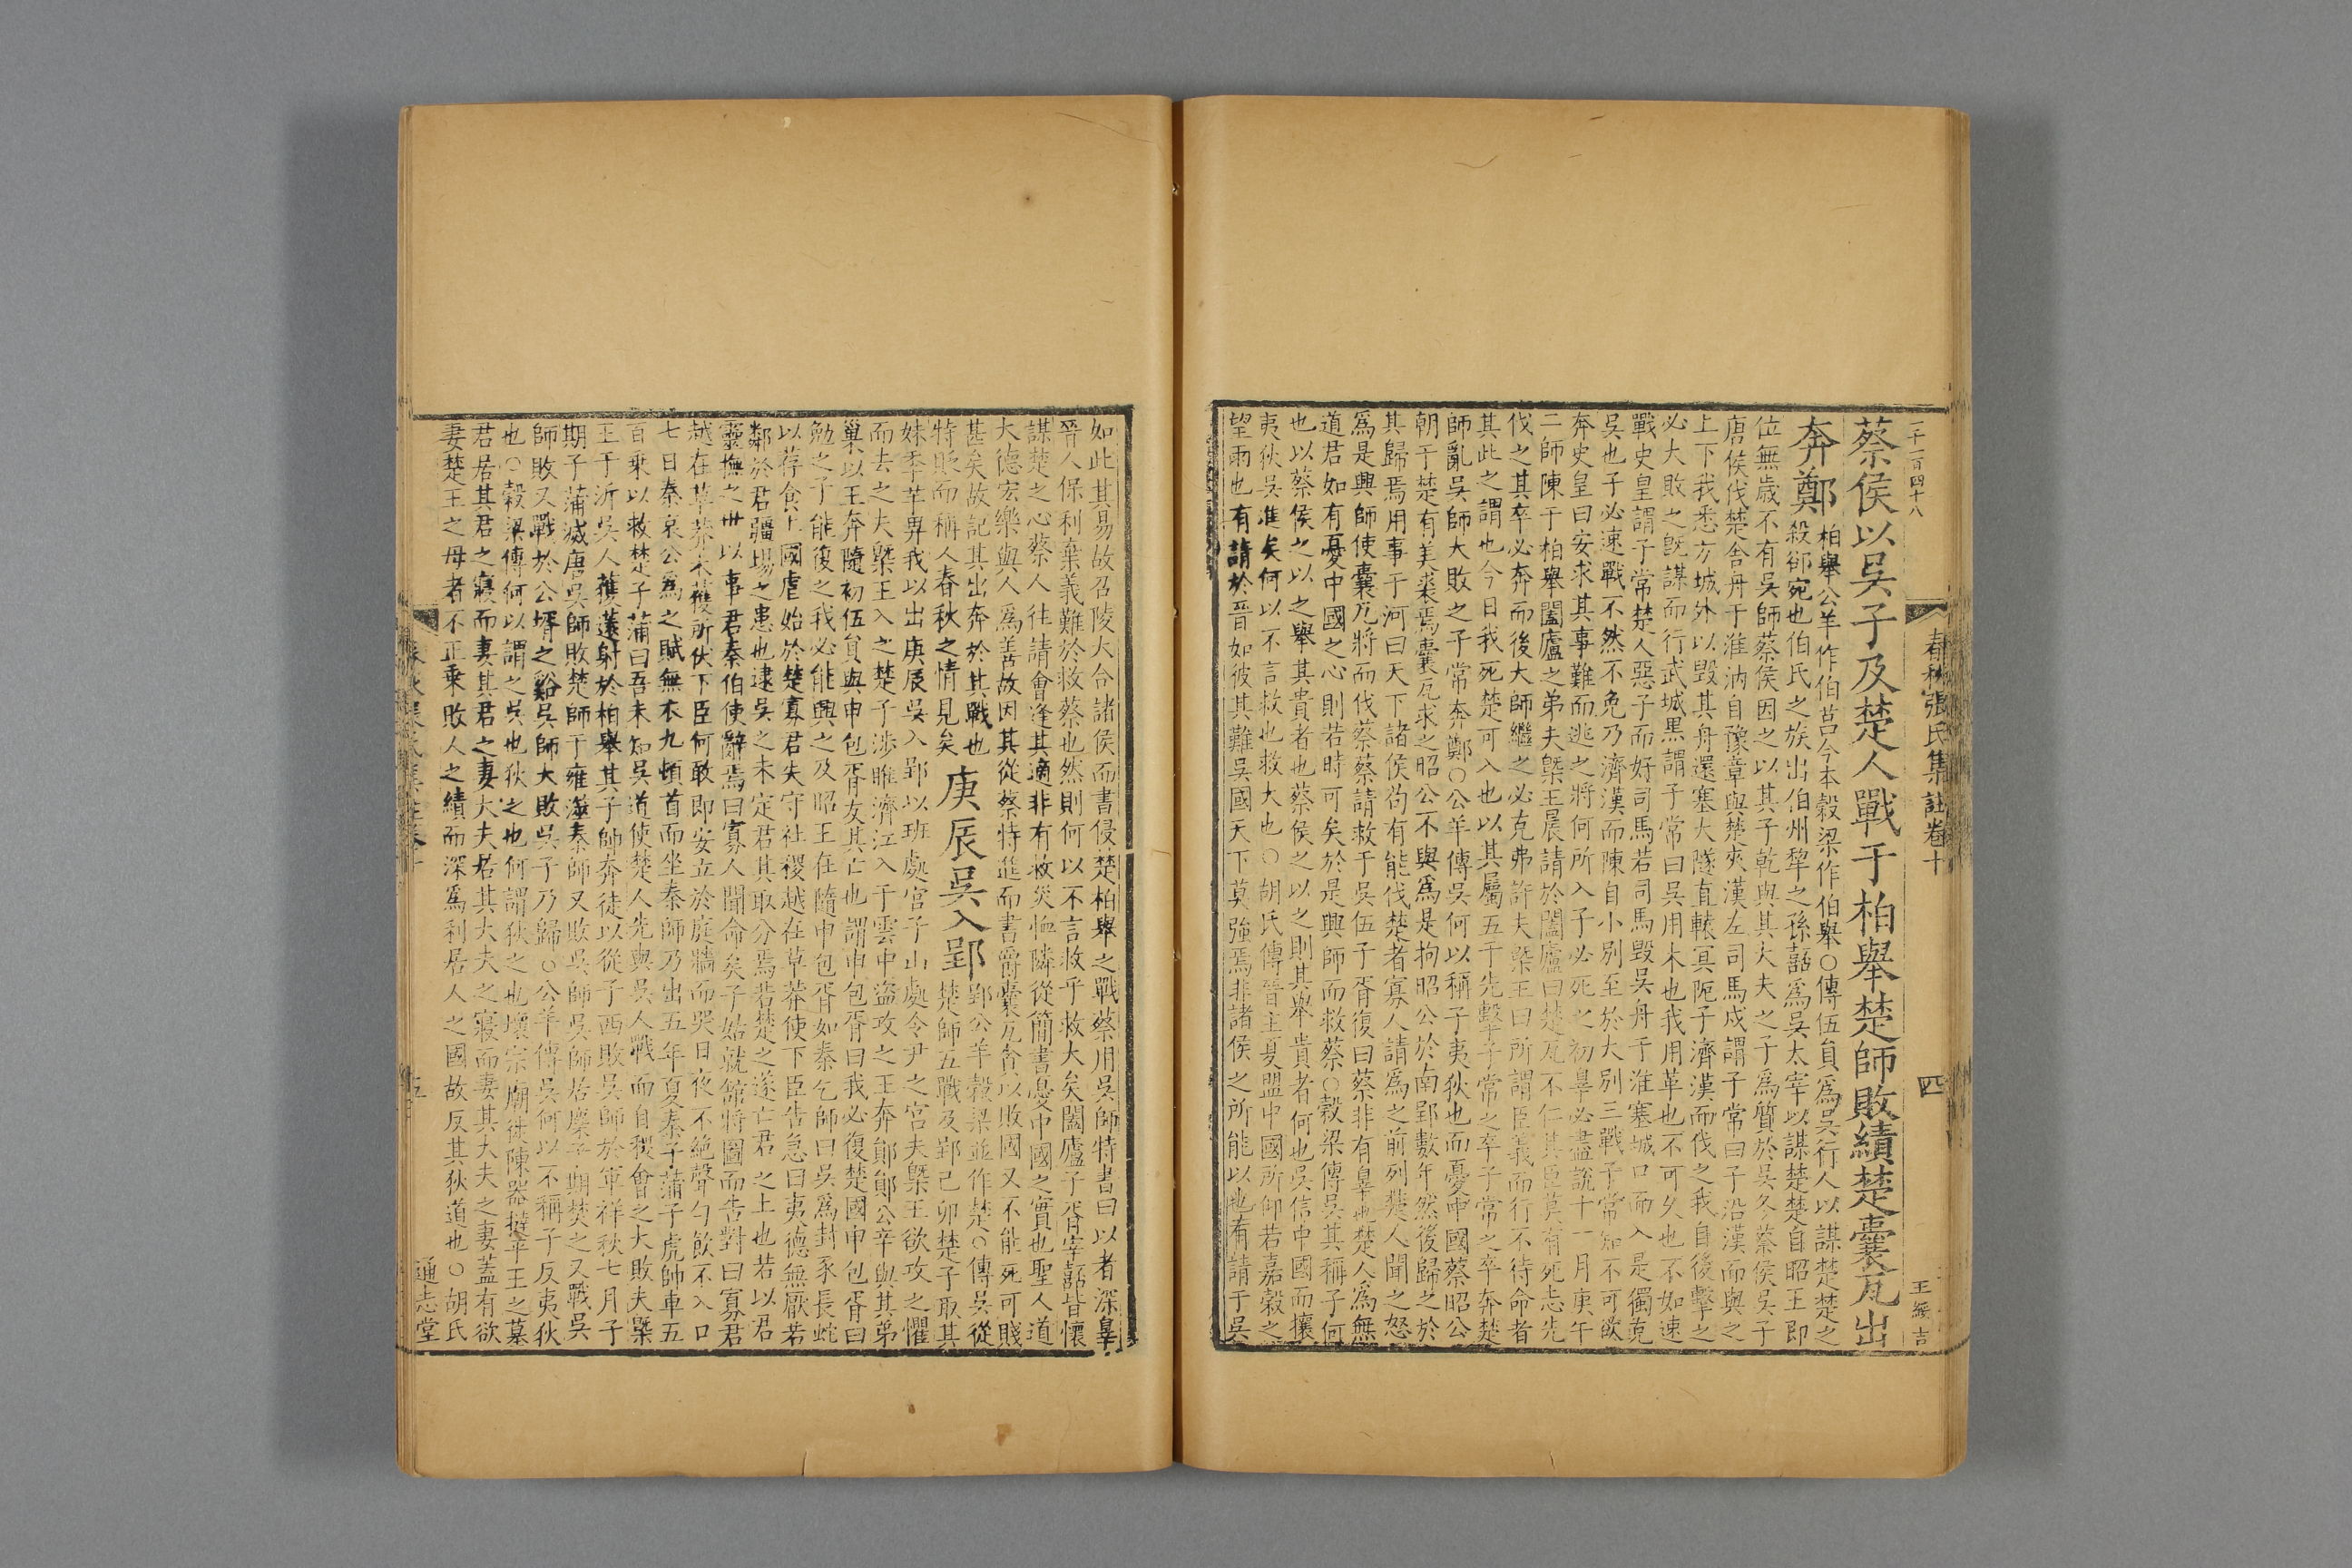 一千一百四十八
春秋張氏集註卷十
四
王綏吉
蔡侯以吳子及楚人戰于柏舉楚師敗績楚囊瓦出
奔鄭
柏舉公羊作伯莒今本穀梁作伯舉○傳伍員爲吳行人以謀楚楚之
殺郤宛也伯氏之族出伯州犂之孫嚭爲吳太宰以謀楚楚自昭王即
位無歲不有吳師蔡侯因之以其子乾與其大夫之子爲質於吳冬蔡侯吳子
唐侯伐楚舍舟于淮汭自豫章與楚夾漢左司馬戌謂子常曰子沿漢而與之
上下我悉方城外以毀其舟還塞大隧直轅冥阨子濟漢而伐之我自後擊之
必大敗之旣謀而行武城黑謂子常曰吳用木也我用革也不可久也不如速
戰史皇謂子常楚人惡子而好司馬若司馬毀吳舟于淮塞城口而入是獨克
吳也子必速戰不然不免乃濟漢而陳自小別至於大別三戰子常知不可欲
奔史皇曰安求其事難而逃之將何所入子必死之初辠必盡說十一月庚午
二師陳于柏舉闔廬之弟夫槩王晨請於闔廬曰楚瓦不仁其臣莫有死志先
伐之其卒必奔而後大師繼之必克弗許夫槩王曰所謂臣義而行不待命者
其此之謂也今日我死楚可入也以其屬五千先擊子常之卒子常之卒奔楚
師亂吳師大敗之子常奔鄭○公羊傳吳何以稱子夷狄也而憂中國蔡昭公
朝于楚有美裘焉囊瓦求之昭公不與爲是拘昭公於南郢數年然後歸之於
其歸焉用事于河曰天下諸侯苟有能伐楚者寡人請爲之前列楚人聞之怒
爲是興師使囊瓦將而伐蔡蔡請救于吳伍子胥復曰蔡非有辠也楚人爲無
道君如有憂中國之心則若時可矣於是興師而救蔡○穀梁傳吳其稱子何
也以蔡侯之以之舉其貴者也蔡侯之以之則其舉貴者何也吳信中國而攘
夷狄吳進矣何以不言救也救大也○胡氏傳晉主夏盟中國所仰若嘉穀之
望雨也有請於晉如彼其難吳國天下莫強焉非諸侯之所能以也有請于吳
如此其易故召陵大合諸侯而書侵楚柏舉之戰蔡用吳師特書曰以者深辠
晉人保利棄義難於救蔡也然則何以不言救乎救大矣闔廬子胥宰嚭皆懷
謀楚之心蔡人往請會逢其適非有救災恤隣從簡書憂中國之實也聖人道
大德宏樂與人爲善故因其從蔡特進而書爵囊瓦貪以敗國又不能死可賤
甚矣故記其出奔於其戰也
特貶而稱人春秋之情見矣
庚辰吳入郢
郢公羊穀梁並作楚○傳吳從
楚師五戰及郢己卯楚子取其
妹季芊畀我以出庚辰吳入郢以班處宮子山處令尹之宮夫槩王欲攻之懼
而去之夫槩王入之楚子涉睢濟江入于雲中盜攻之王奔鄖鄖公辛與其弟
巢以王奔隨初伍員與申包胥友其亡也謂申包胥曰我必復楚國申包胥曰
勉之子能復之我必能興之及昭王在隨申包胥如秦乞師曰吳爲封豕長蛇
以荐食上國虐始於楚寡君失守社稷越在草莽使下臣告急曰夷德無厭若
鄰於君疆埸之患也逮吳之未定君其取分焉若楚之遂亡君之上也若以君
靈撫之世以事君秦伯使辭焉曰寡人聞命矣子姑就館將圖而告對曰寡君
越在草莽未獲所伏下臣何敢即安立於庭牆而哭日夜不絕聲勺飲不入口
七日秦哀公爲之賦無衣九頓首而坐秦師乃出五年夏秦子蒲子虎帥車五
百乘以救楚子蒲曰吾未知吳道使楚人先與吳人戰而自稷會之大敗夫槩
王于沂吳人獲薳射於柏舉其子帥奔徒以從子西敗吳師於軍祥秋七月子
期子蒲滅唐吳師敗楚師于雍澨秦師又敗吳師吳師居麇子期焚之又戰吳
師敗又戰於公壻之谿吳師大敗吳子乃歸○公羊傳吳何以不稱子反夷狄
也○穀梁傳何以謂之吳也狄之也何謂狄之也壞宗廟徙陳器撻平王之墓
君居其君之寢而妻其君之妻大夫居其大夫之寢而妻其大夫之妻蓋有欲
妻楚王之母者不正乘敗人之績而深爲利居人之國故反其狄道也○胡氏
五
通志堂